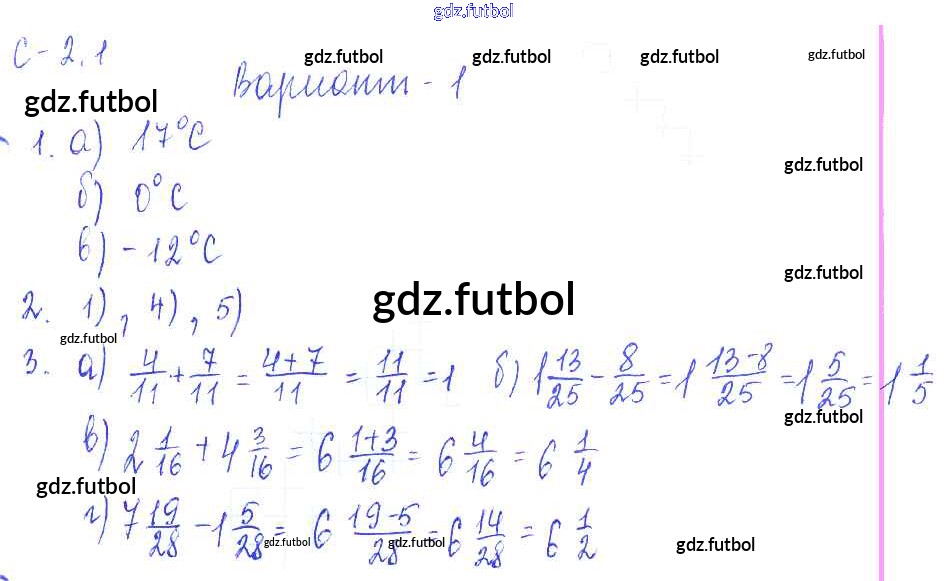 gdz.futbol
С-2.1
gdz.futbol gdz.futbol gdz.futbol gdz.futbol
Вариант - 1
gdz.futbol
1. а) 17°С
gdz.futbol
б) 0°С
в) -12°С
gdz.futbol
2. 1), 4), 5)
gdz.futbol
gdz.futbol
3. а) 4/11 + 7/11 = 4+7/11 = 11/11 = 1 б) 1 13/25 - 8/25 = 1 13-8/25 = 1 5/25 = 1 1/5
gdz.futbol
в) 2 1/16 + 4 3/16 = 6 1+3/16 = 6 4/16 = 6 1/4
gdz.futbol
г) 7 19/28 - 1 5/28 = 6 19-5/28 = 6 14/28 = 6 1/2
gdz.futbol gdz.futbol gdz.futbol